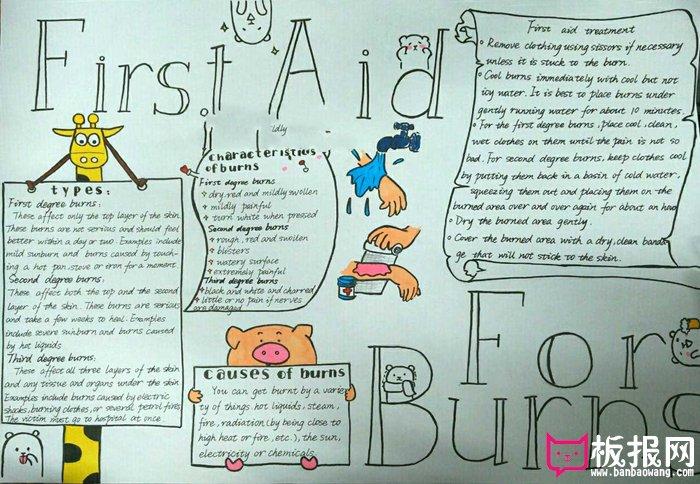 First Aid
For
Burns
types:
First degree burns:
These affect only the top layer of the skin.
These burns are not serious and should feel
better within a day or two. Examples include
mild sunburn and burns caused by touch-
ing a hot pan, stove or eron for a moment
Second degree burns:
These affect both the top and the second
layer of the skin. These burns are serious
and take a few weeks to heal. Examples
include severe sunburn and burns caused
by hot liquids
Third degree burns:
These affect all three layers of the skin
and any tissue and organs under the skin.
Examples include burns caused by electric
shocks, burning clothes, or several petrol fires.
The victim must go to hospital at once
ldly
Characteristics
of burns
First degree burns
dry, red and mildly swollen
mildly painful
turn white when pressed
Second degree burns
rough, red and swollen
blisters
watery surface
extremely painful
Third degree burns
black and white and charred
little or no pain if nerves
are damaged
Causes of burns
You can get burnt by a varie
ty of things hot liquids, steam,
fire, radiation (by being close to
high heat or fire, etc.), the sun,
electricity or chemicals
First aid treatment
Remove clothing using sissors if necessary
unless it is stuck to the burn.
Cool burns immediately with cool but not
icy water. It is best to place burns under
gently running water for about 10 minutes.
For the first degree burns, place cool, clean,
wet clothes on them until the pain is not so
bad. For second degree burns, keep clothes cool
by putting them back in a basin of cold water,
squeezing them out and placing them on the
burned area over and over again for about an hou
Dry the burned area gently.
Cover the burned area with a dry, clean banda
ge that will not stick to the skin.
板报网
www.banbaowang.com